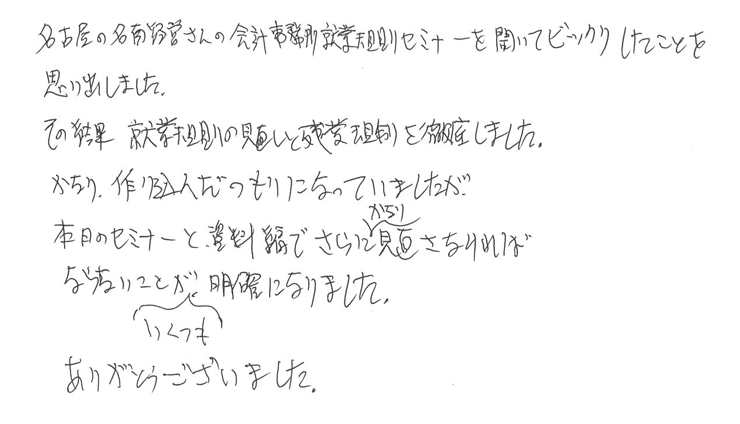 名古屋の名南経営さんの会計事務所就業規則セミナーを聞いてビックリしたことを
思い出しました。
その結果 就業規則の見直しと残業規制を徹底しました。
かなり、作り込んだつもりになっていましたが、
かなり
本日のセミナーと資料編でさらに見直さなければ
ならないことが明確になりました。
いくつも
ありがとうございました。